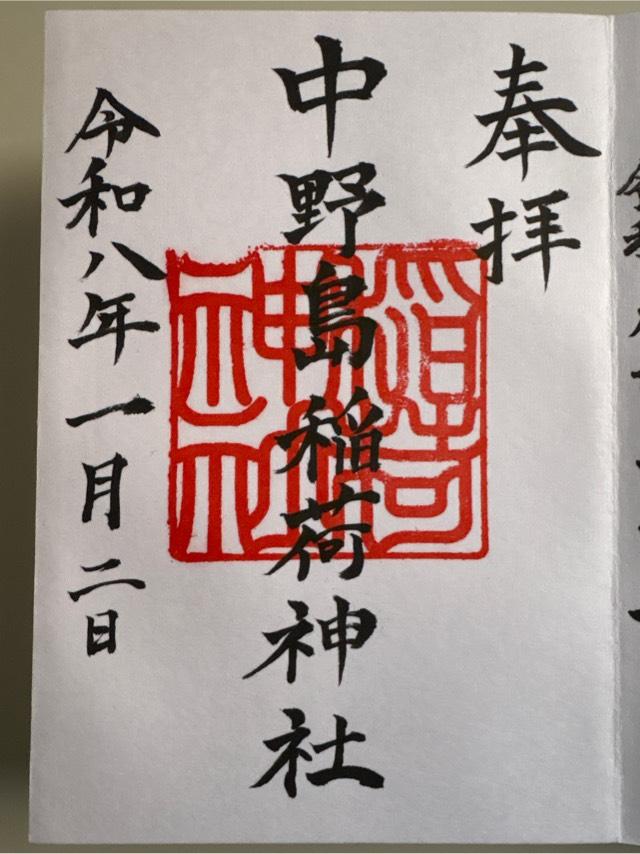 奉拝
中野島稲荷神社
令和八年一月二日